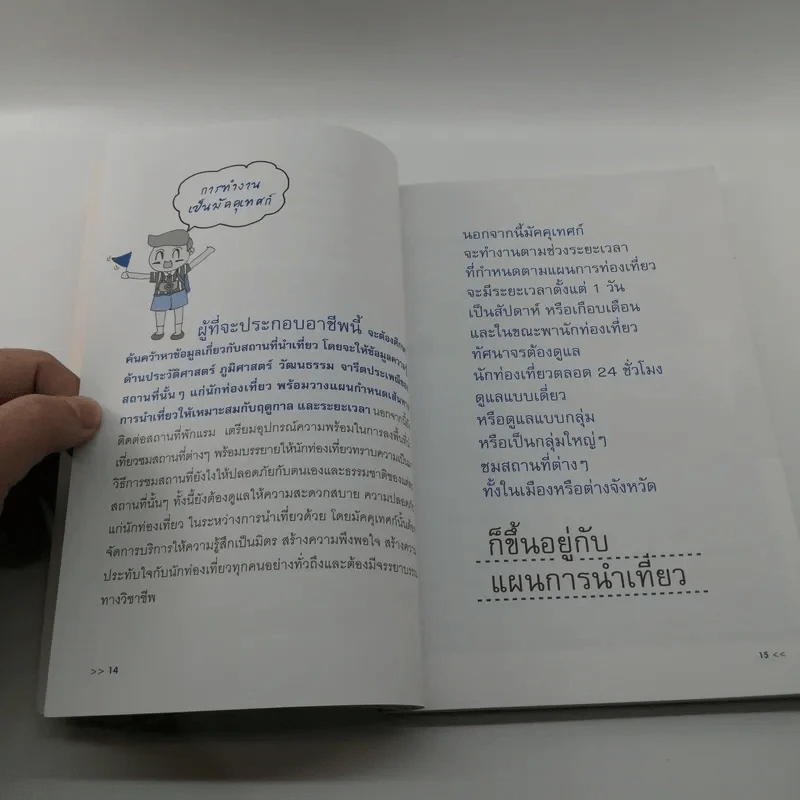 การทำงาน
เป็นมัคคุเทศก์
ผู้ที่จะประกอบอาชีพนี้ จะต้องศึกษา
ค้นคว้าหาข้อมูลเกี่ยวกับสถานที่นำเที่ยว โดยจะให้ข้อมูลความรู้
ด้านประวัติศาสตร์ ภูมิศาสตร์ วัฒนธรรม จารีตประเพณีของ
สถานที่นั้นๆ แก่นักท่องเที่ยว พร้อมวางแผนกำหนดเส้นทาง
การนำเที่ยวให้เหมาะสมกับฤดูกาล และระยะเวลา นอกจากนี้
ติดต่อสถานที่พักแรม เตรียมอุปกรณ์ความพร้อมในการลงพื้นที่
เที่ยวชมสถานที่ต่างๆ พร้อมบรรยายให้นักท่องเที่ยวทราบความเป็นมา
วิธีการชมสถานที่ยังไงให้ปลอดภัยกับตนเองและธรรมชาติของ
สถานที่นั้นๆ ทั้งนี้ยังต้องดูแลให้ความสะดวกสบาย ความปลอดภัย
แก่นักท่องเที่ยว ในระหว่างการนำเที่ยวด้วย โดยมัคคุเทศก์นั้นต้อง
จัดการบริการให้ความรู้สึกเป็นมิตร สร้างความพึงพอใจ สร้างความ
ประทับใจกับนักท่องเที่ยวทุกคนอย่างทั่วถึงและต้องมีจรรยาบรรณ
ทางวิชาชีพ
>> 14
นอกจากนี้มัคคุเทศก์
จะทำงานตามช่วงระยะเวลา
ที่กำหนดตามแผนการท่องเที่ยว
จะมีระยะเวลาตั้งแต่ 1 วัน
เป็นสัปดาห์ หรือเกือบเดือน
และในขณะพานักท่องเที่ยว
ทัศนาจรต้องดูแล
นักท่องเที่ยวตลอด 24 ชั่วโมง
ดูแลแบบเดี่ยว
หรือดูแลแบบกลุ่ม
หรือเป็นกลุ่มใหญ่ๆ
ชมสถานที่ต่างๆ
ทั้งในเมืองหรือต่างจังหวัด
ก็ขึ้นอยู่กับ
แผนการนำเที่ยว
15 <<